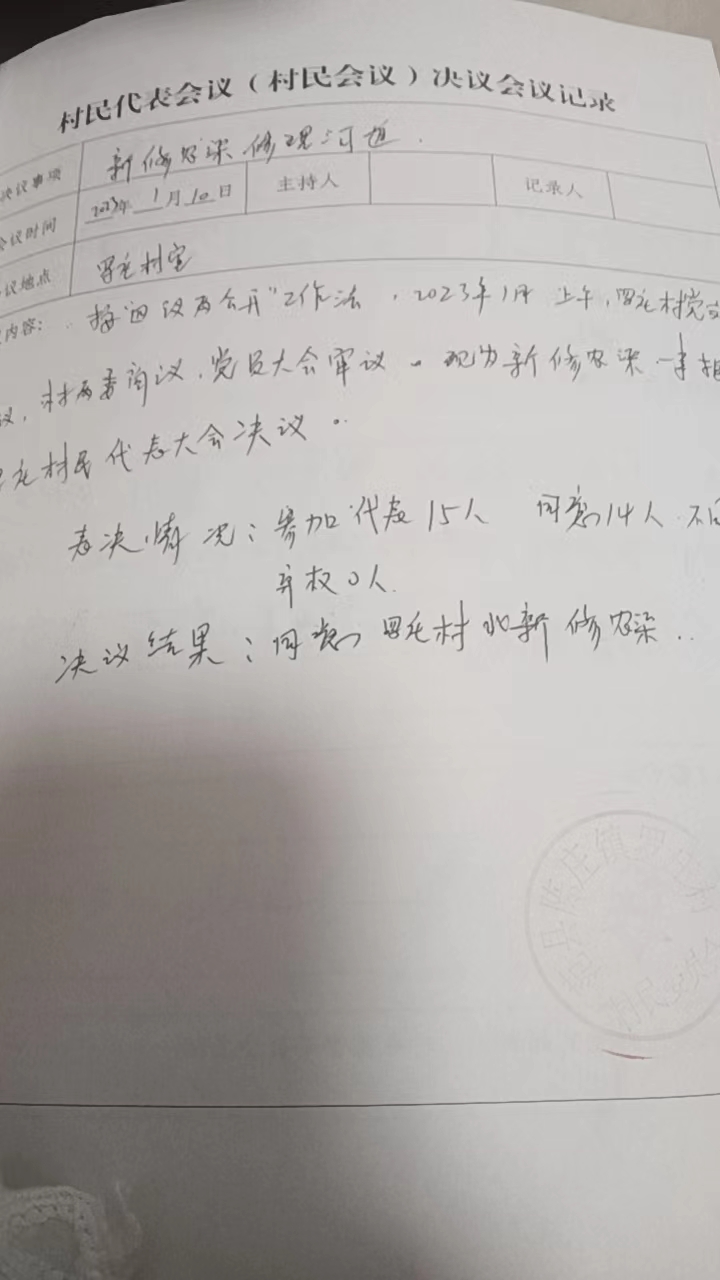 村民代表会议（村民会议）决议会议记录
决议事项 新修农渠修理河道.
会议时间 2023年1月10日 主持人 记录人
议地点 罗庄村室
内容: 按"四议两公开"工作法，2023年1月 上午，罗庄村党支
议，村两委商议，党员大会审议。现为新修农渠一事提
罗庄村民代表大会决议。
表决情况：参加代表15人 同意14人 不同
弃权0人.
决议结果：同意 罗庄村 新修农渠..
县陈庄镇罗庄村
村民委员会